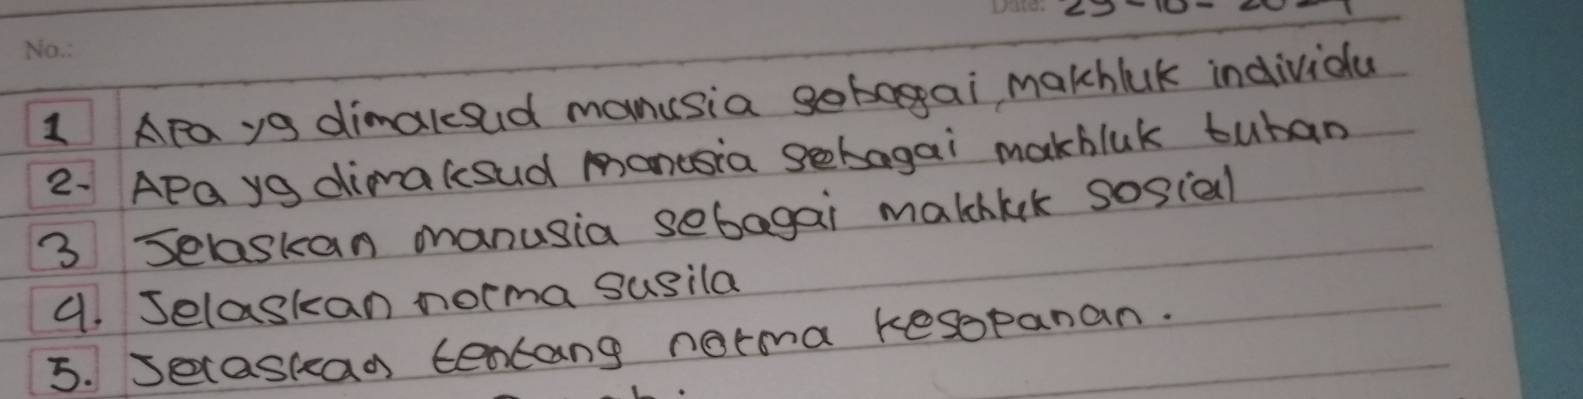 No.:
Date:
1 Apa yg dimaksud manusia sebagai makhluk individu
2- Apa yg dimaksud manusia sebagai makhluk tuhan
3 Jelaskan manusia sebagai makhluk sosial
4. Jelaskan norma susila
5. Jelaskan tentang norma kesopanan.